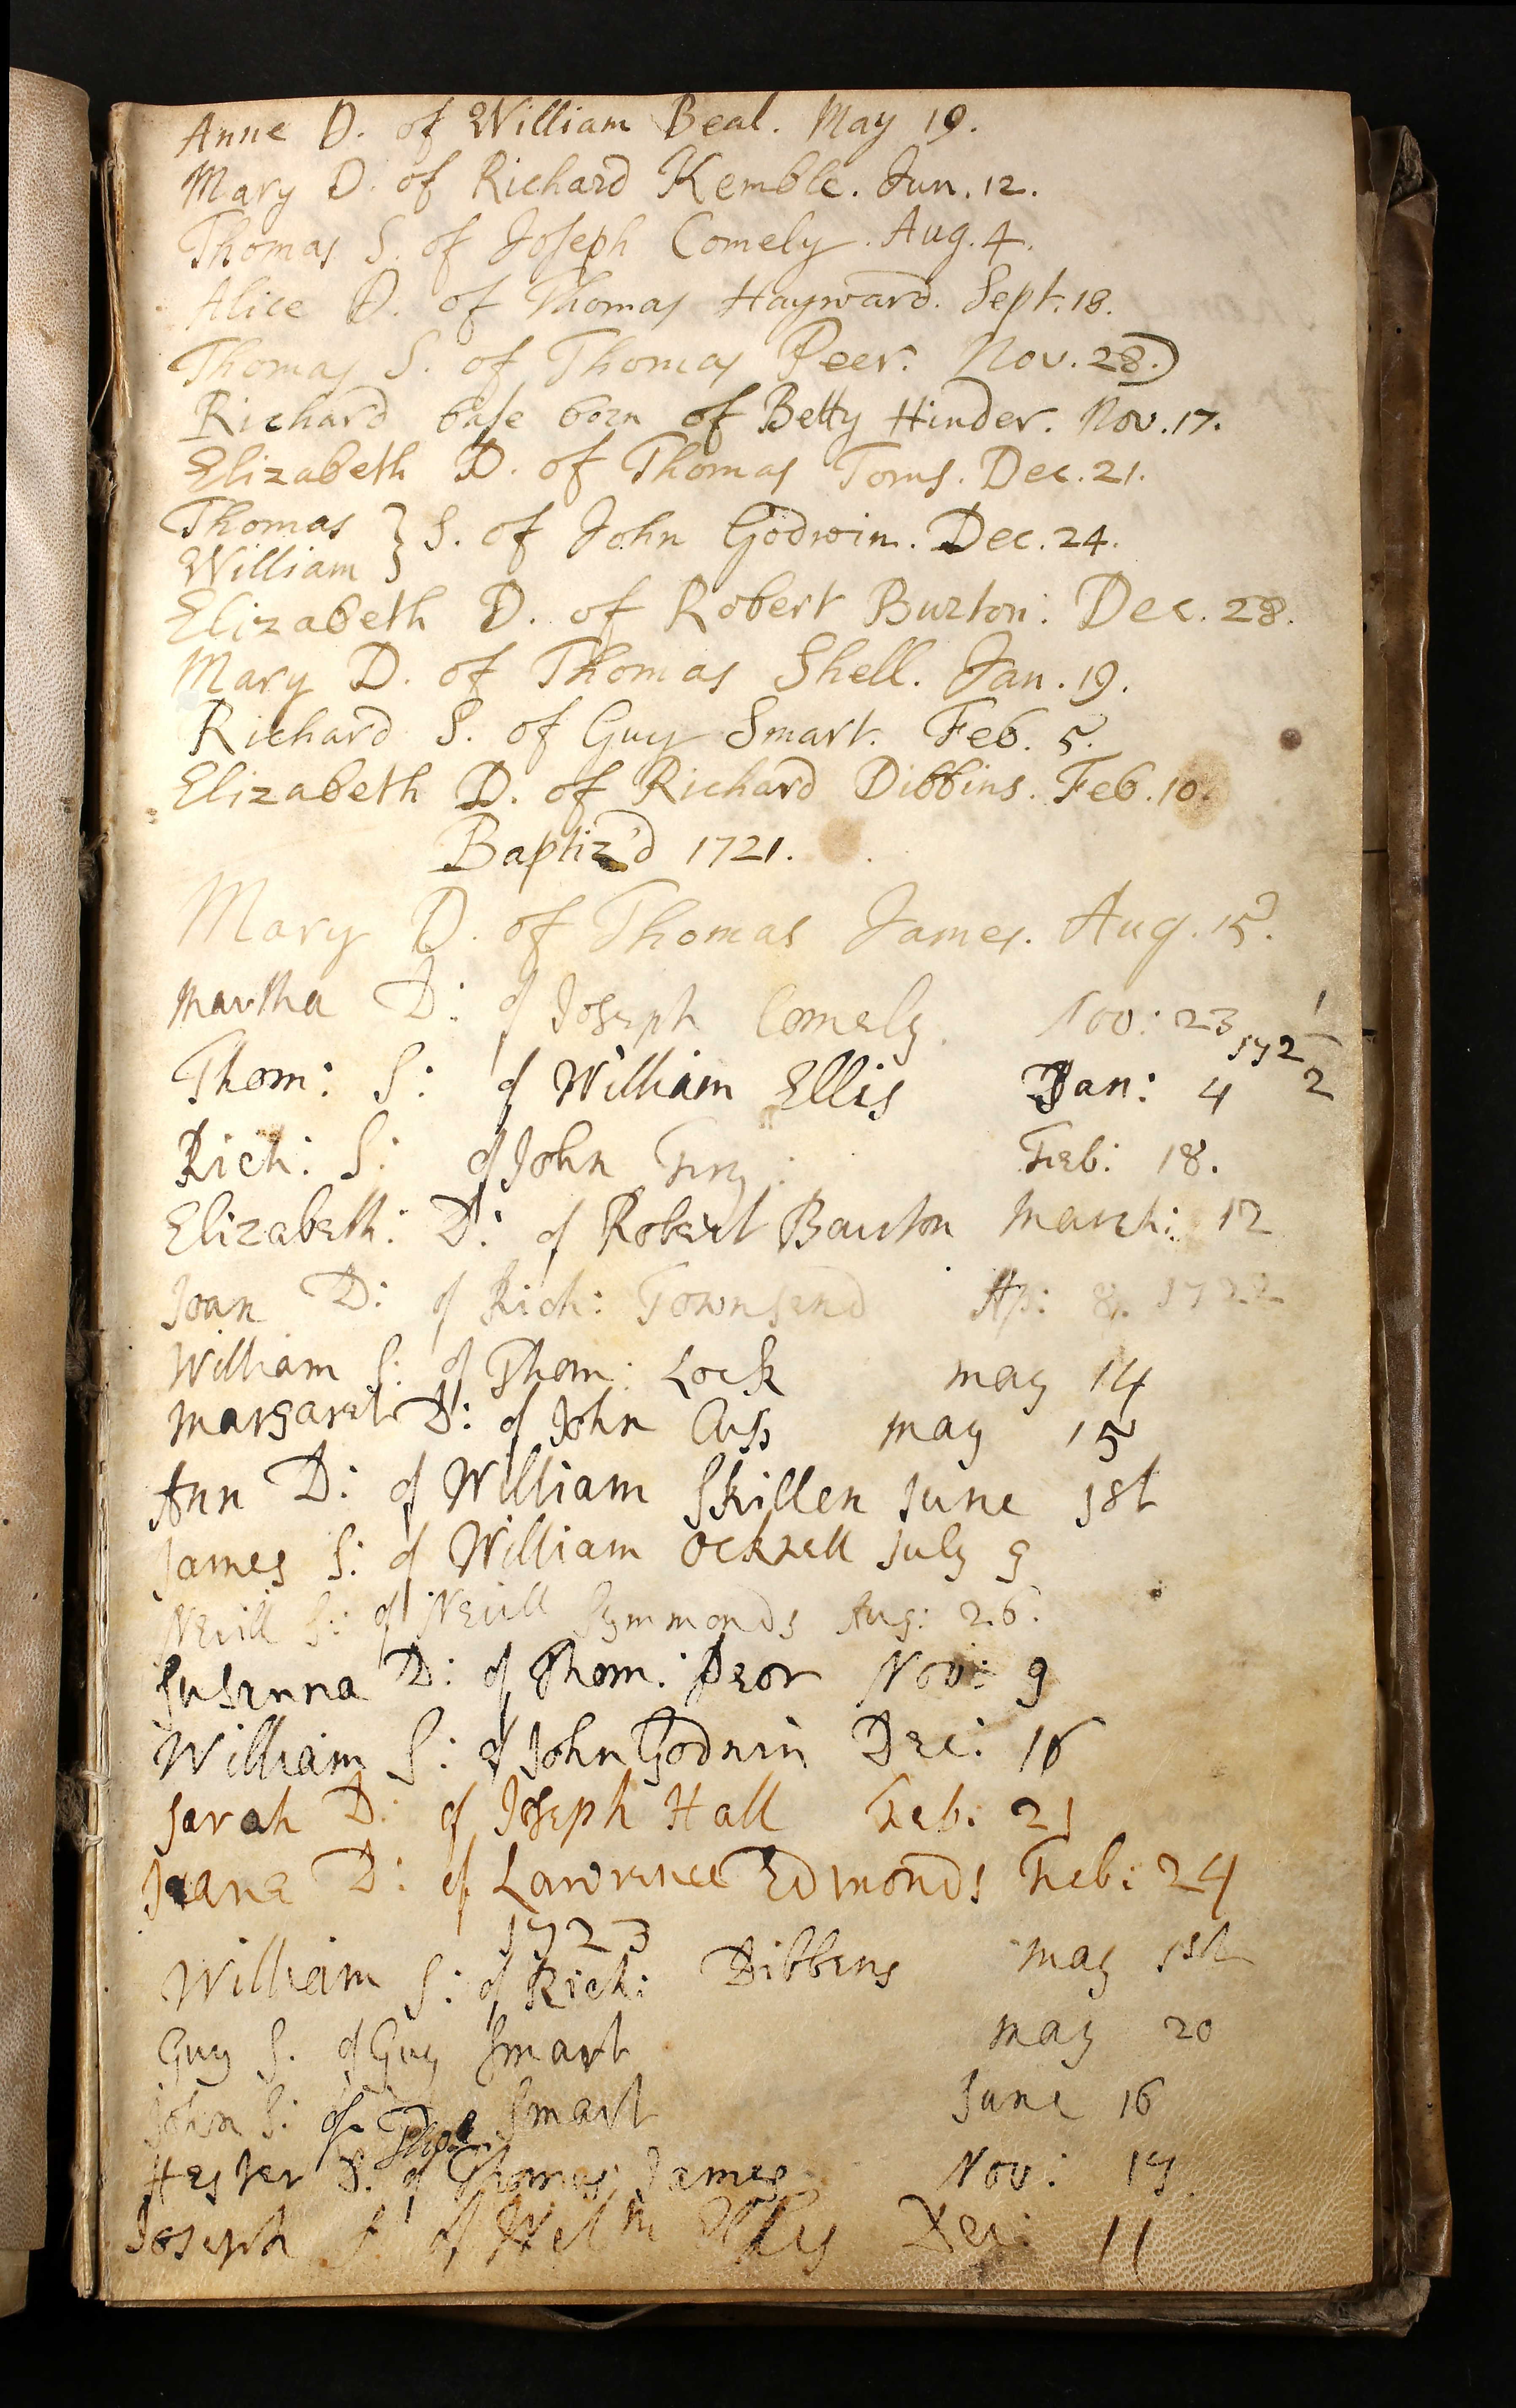 Anne D. of William Beal. May 19.
Mary D. of Richard Kemble. Jun. 12.
Thomas S. of Joseph Comely. Aug. 4.
Alice D. of Thomas Hayward. Sept. 18.
Thomas S. of Thomas Peer. Nov. 28.)
Richard base born of Betty Hinder. Nov. 17.
Elizabeth D. of Thomas Toms. Dec. 21.
Thomas } S. of John Godwin. Dec. 24.
William }
Elizabeth D. of Robert Burton: Dec. 28.
Mary D. of Thomas Shell. Jan. 19.
Richard S. of Guy Smart. Feb. 5.
Elizabeth D. of Richard Dibbins. Feb. 10.
Baptiz'd 1721.
Mary D. of Thomas James. Aug. 15.
Martha D: of Joseph Comely. Nov: 23
Thom: S: of William Ellis Jan: 4 172 1/2
Rich: S: of John Feb: 18.
Elizabeth: D: of Robert Burton March: 12
Joan D: of Rich: Townsend Ap: 8. 1722
William S: of Thom: Lock may 14
Margaret D: of John Cuss may 15
Ann D: of William Skillen June 1st
James S: of William Ockwell July 9
Nevill S: of Nevill Symmonds Aug: 26.
Susanna D: of Thom: Peor Nov: 9
William S: of John Godwin Dec: 16
Sarah D: of Joseph Hall Feb: 21
Jeane D: of Lawrence Edmonds Feb: 24
1723
William S: of Rich: Dibbens may 1st
Guy S. of Guy Smart may 20
John S: of Smart June 16
Hester D. of Thomas James Nov: 17.
Joseph S of Wel m Ellis Dec: 11